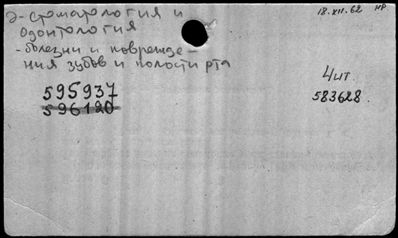 Э-стоматология и
Одонтология
- болезни и поврежде-
ния зубов и полости рта
18.XII.62 НР
4 ит.
583628.
595937
596120